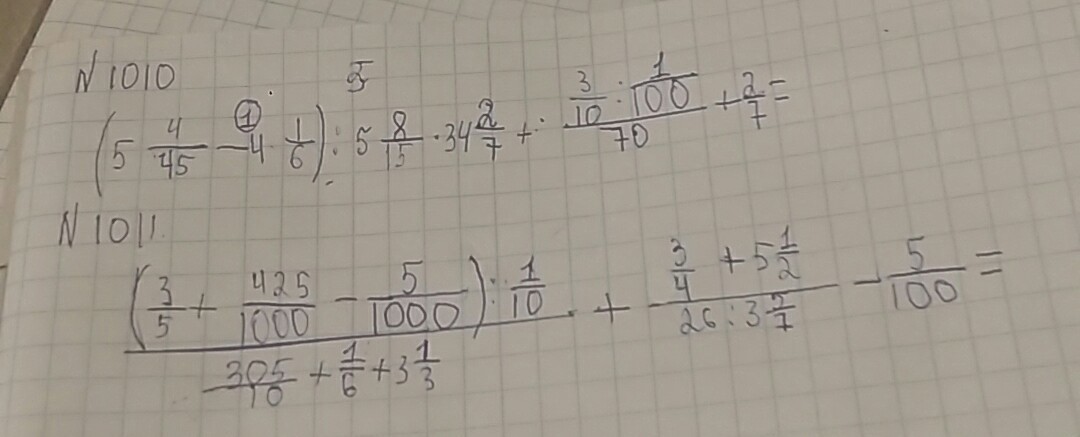 N 1010
(5 4/45 - 4 1/6) : 5 8/15 · 34 2/7 + (3/10 : 1/100)/70 + 2/7 =
N 1011.
((3/5 + 425/1000 - 5/1000) : 1/10)/(305/10 + 1/6 + 3 1/3) + (3/4 + 5 1/2)/(26 : 3 5/7) - 5/100 =